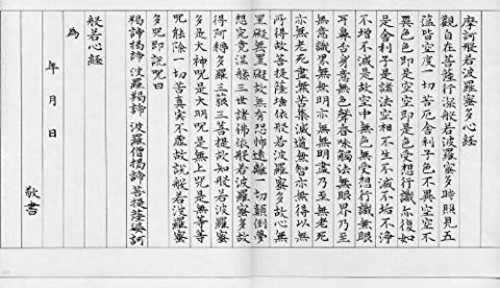 摩訶般若波羅蜜多心経
觀自在菩薩行深般若波羅蜜多時照見五
蘊皆空度一切苦厄舍利子色不異空空不
異色色即是空空即是色受想行識亦復如
是舍利子是諸法空相不生不滅不垢不淨
不增不減是故空中無色無受想行識無眼
耳鼻舌身意無色聲香味觸法無眼界乃至
無意識界無無明亦無無明盡乃至無老死
亦無老死盡無苦集滅道無智亦無得以無
所得故菩提薩埵依般若波羅蜜多故心無
罣礙無罣礙故無有恐怖遠離一切顛倒夢
想究竟涅槃三世諸佛依般若波羅蜜多故
得阿耨多羅三藐三菩提故知般若波羅蜜
多是大神呪是大明呪是無上呪是無等等
呪能除一切苦真實不虛故説般若波羅蜜
多呪即説呪曰
羯諦羯諦 波羅羯諦 波羅僧羯諦 菩提薩婆訶
般若心経
為
年 月 日
敬書